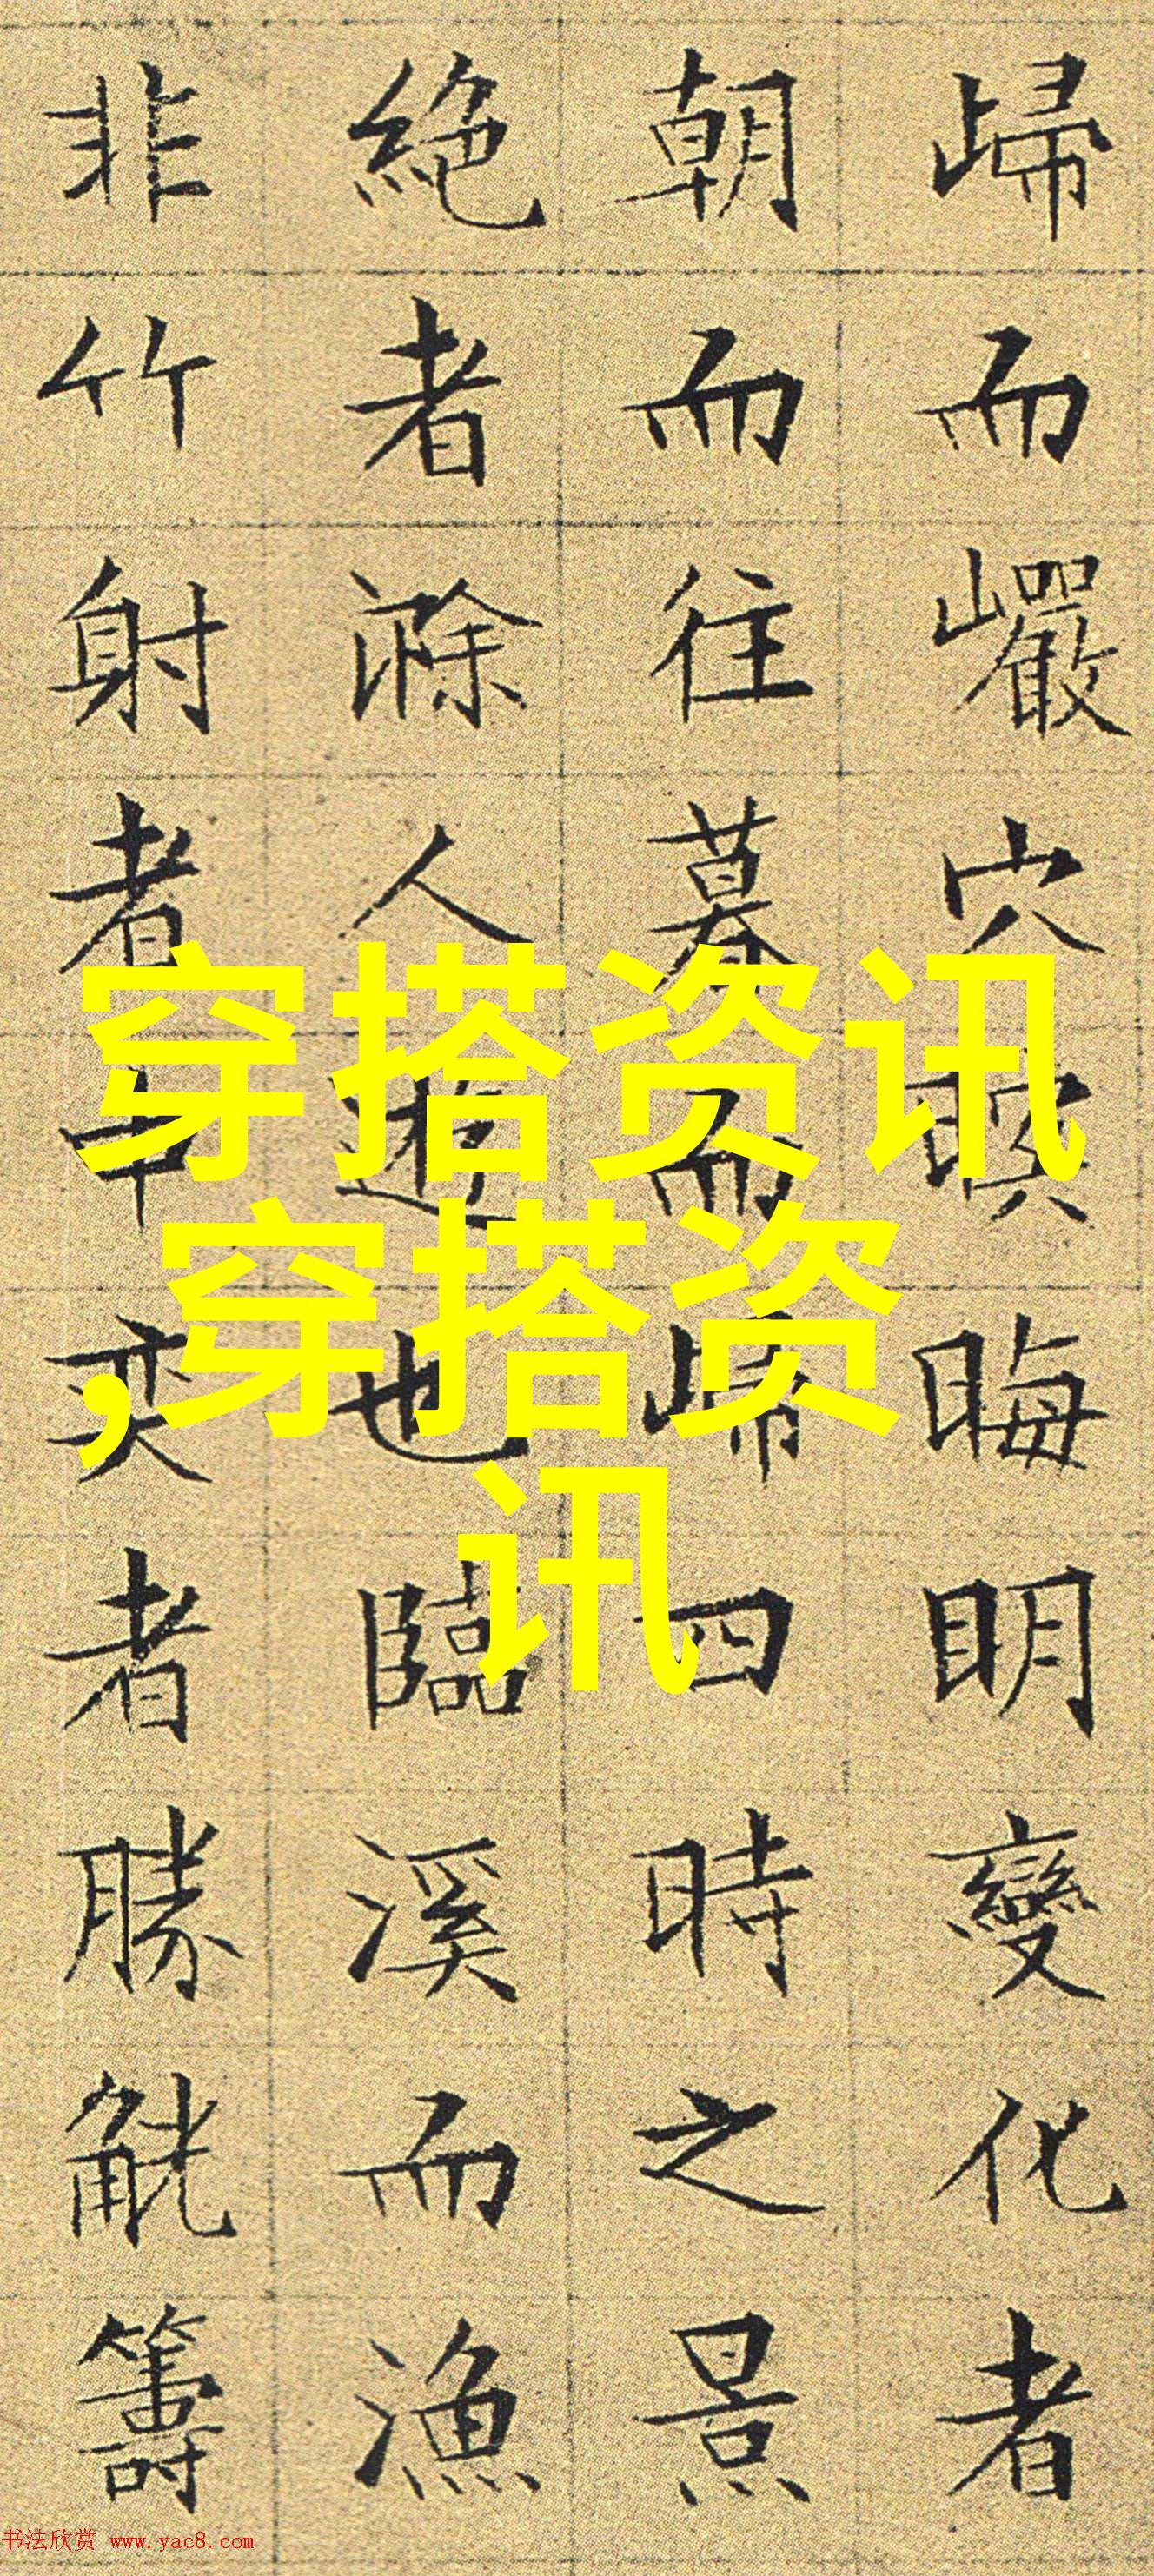 歸而巖穴暝晦明變化者
朝而往暮而歸四時之景
絶者滁人遊也臨溪而漁
非竹射者中奕者勝觥籌
穿搭资讯
,穿搭资
讯
书法欣赏 www.yac8.com